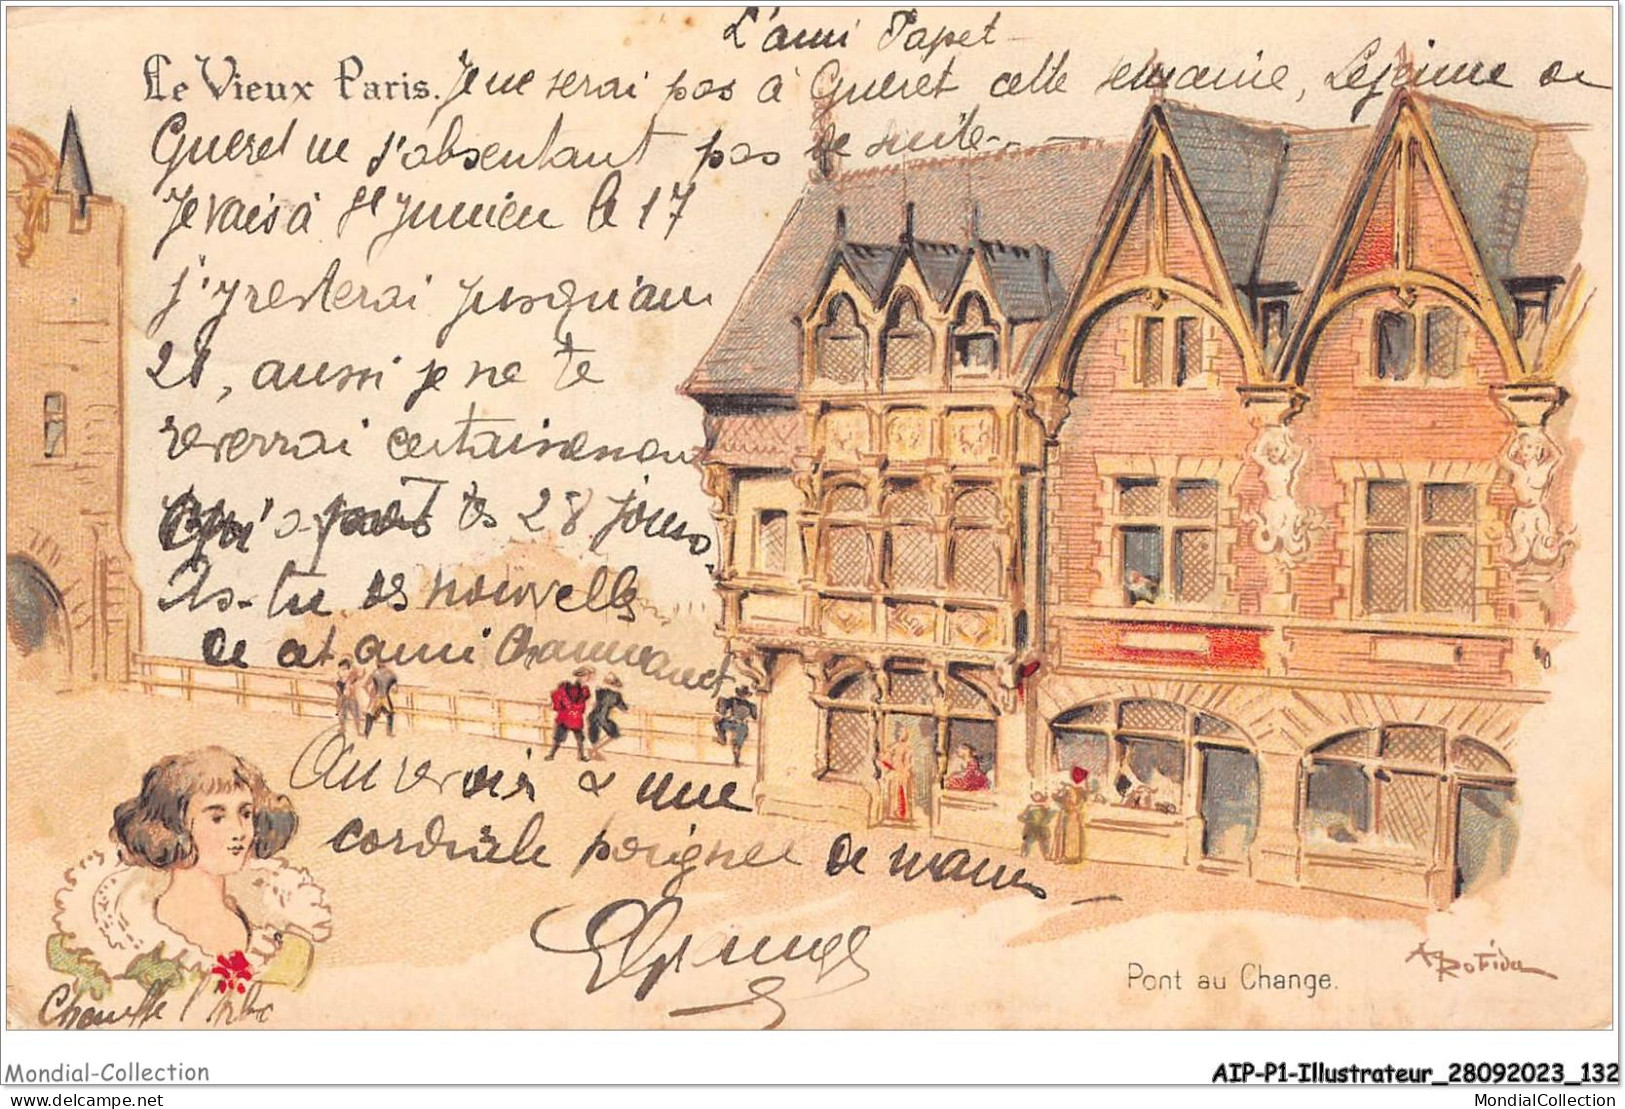 L'ami Papet
Le Vieux Paris. Je ne serai pas à Gueret cette semaine, Lejeune de
Gueret ne s'absentant pas de suite
Je vais à St Junien le 17
j'y resterai jusqu'au
28, aussi je ne te
reverrai certainement
qu'après tes 28 jours
As-tu des nouvelles
de cet ami
Au revoir & une
cordiale poignée de mains
Pont au Change.
A Robida
Mondial-Collection
AIP-P1-Illustrateur_28092023_132
delcampe.net
MondialCollection